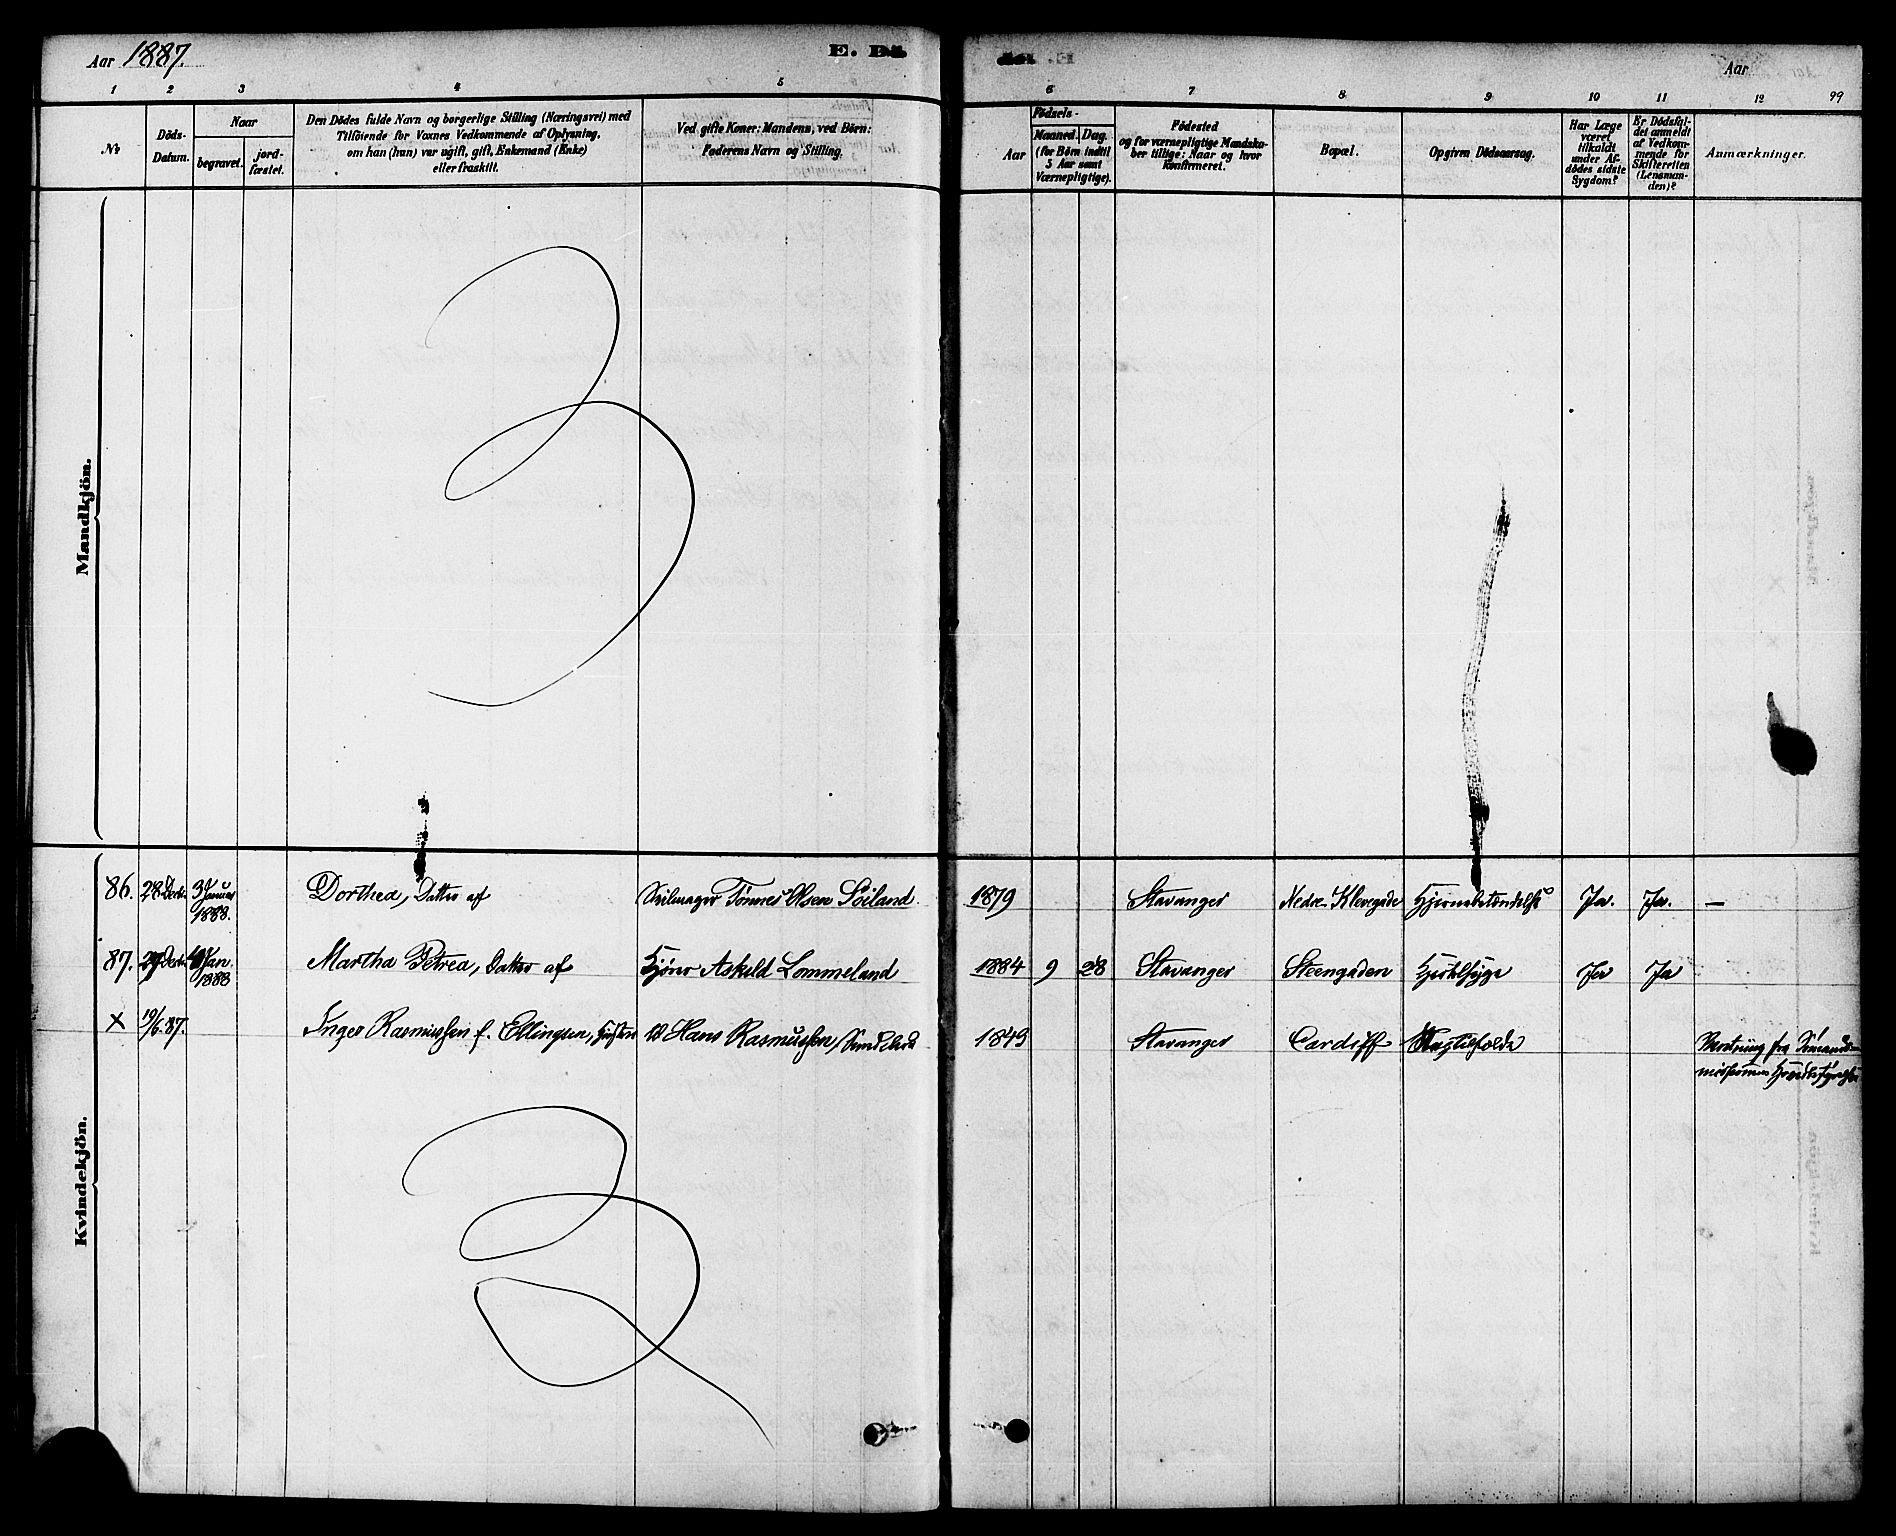 Aar 1887.
E. Dö
Aar
1 2 3 4 5 6 7 8 9 10 11 12 99
№
Döds-Datum.
Naar
begravet.
jord-fæstet.
Den Dödes fulde Navn og borgerlige Stilling (Næringsvei) med
Tilföiende for Voxnes Vedkommende af Oplysning,
om han (hun) var ugift, gift, Enkemand (Enke)
eller fraskilt.
Ved gifte Koner: Mandens, ved Börn:
Faderens Navn og Stilling.
Födsels-
Aar
Maaned. Dag.
(for Börn indtil
5 Aar samt
Værnepligtige).
Födested
og for værnepligtige Mandska-
ber tillige: Naar og hvor
konfirmeret.
Bopæl.
Opgiven Dödsaarsag.
Har Læge
været
tilkaldt
under Af-
dödes sidste
Sygdom?
Er Dödsfal-
det anmeldt
af Vedkom-
mende for
Skifteretten
(Lensman-
den)?
Anmærkninger.
Mandkjön.
Kvindekjön.
86. 28 Decbr. 3 Januar 1888. Dorthea, Datter af Tönnes Olsen Söiland 1879 Stavanger Nedre Klevegade Hjernebetændelse Ja. Ja. —
87. 29 Decbr. Jan. 1888 Martha Petrea, Datter af Askild Lommeland 1884 9 28 Stavanger Steengaden Ja Ja
× 19/6.87. Inger Rasmussen f. Ellingsen, Hans Rasmussen, 1849 Stavanger Cardiff fra Sömands-
missionens Hovedbestyrelse